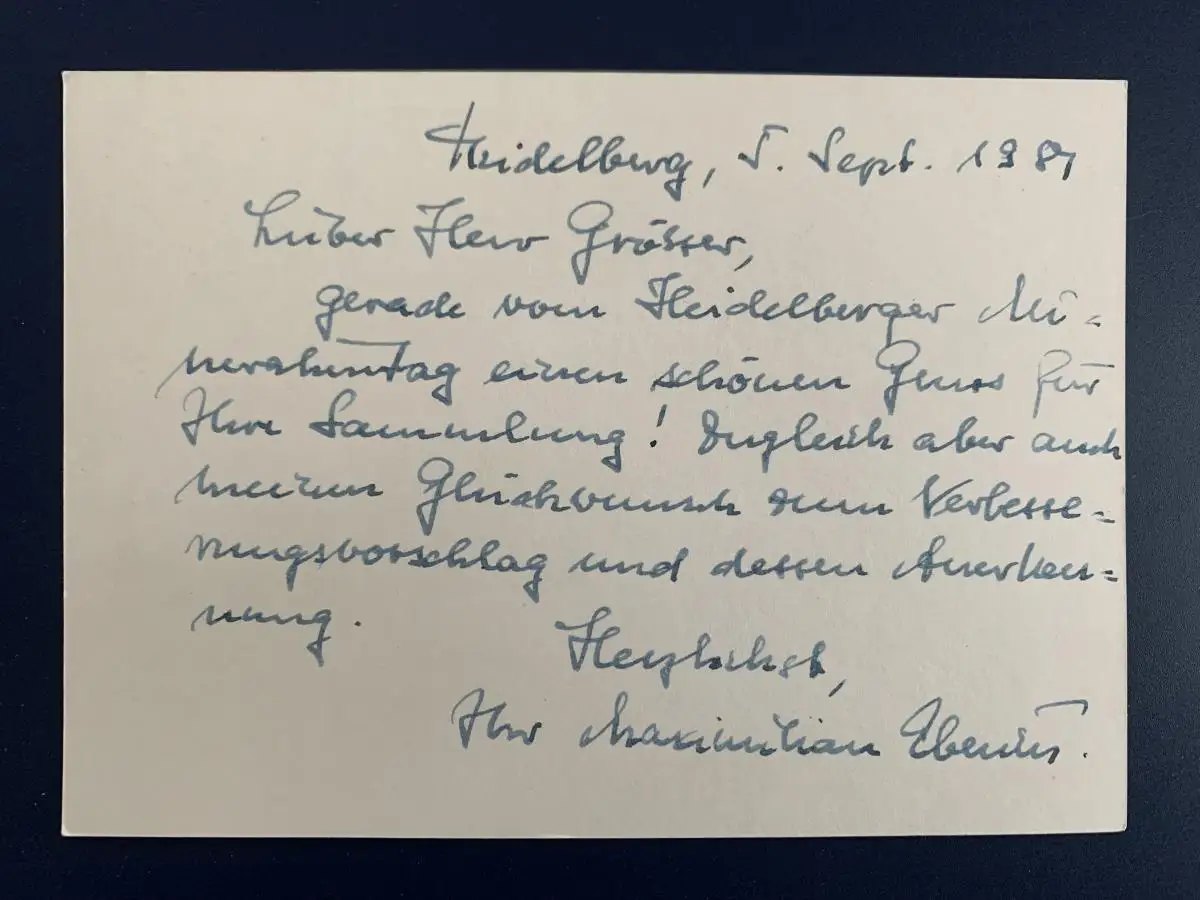 Heidelberg, 5. Sept.
Lieber Herr Grösser,
gerade vom Heidelberger Mi-
neralientag einen schönen Gruss für
Ihre Sammlung! Zugleich aber auch
meinen Glückwunsch zum Verbesse-
rungsvorschlag und dessen Anerken-
nung.
Herzlichst,
Ihr Maximilian